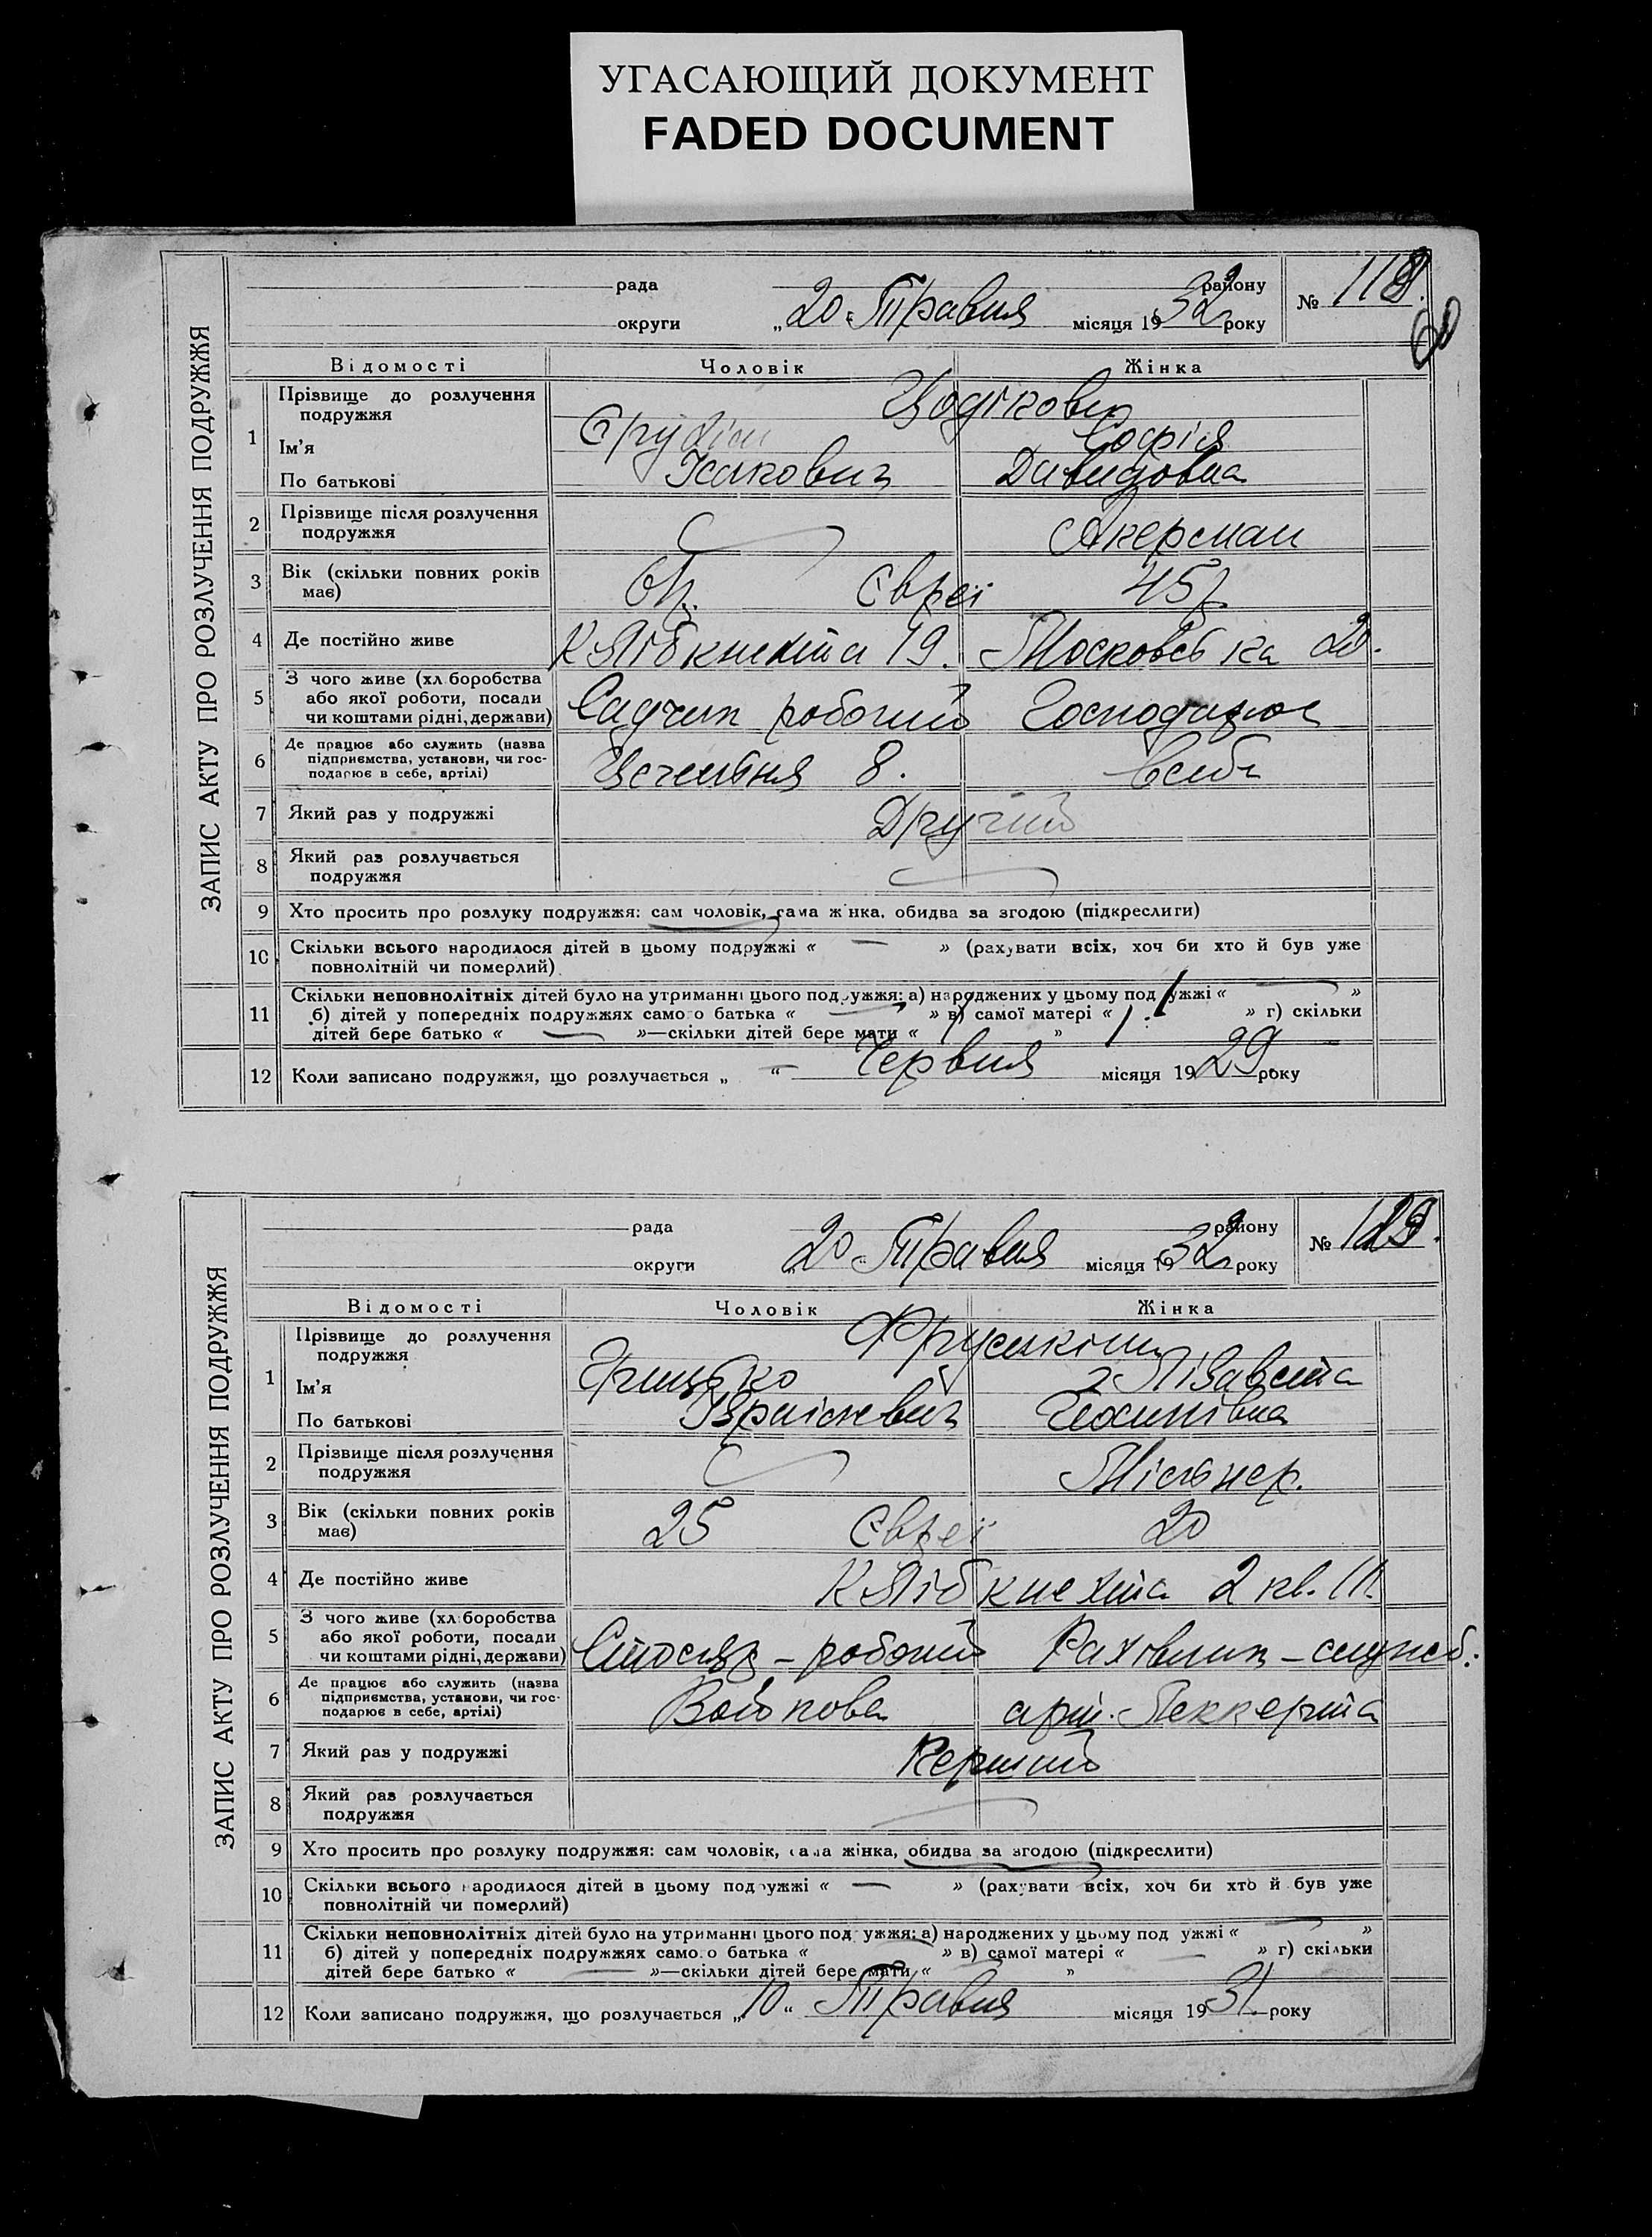 УГАСАЮЩИЙ ДОКУМЕНТ
FADED DOCUMENT
ЗАПИС АКТУ ПРО РОЗЛУЧЕННЯ ПОДРУЖЖЯ
рада району
округи „20“ Травня місяця 1932 року
№ 118.
60
Відомості Чоловік Жінка
1 Прізвище до розлучення
подружжя
Ім’я Софія
По батькові Ісакович Давидовна
2 Прізвище після розлучення
подружжя Акерман
3 Вік (скільки повних років
має) Євреї 45 р.
4 Де постійно живе К Лібкнехта 19. Московсь ка 20.
5 З чого живе (хліборобства
або якої роботи, посади
чи коштами рідні, держави) робочий
6 Де працює або служить (назва
підприємства, установи, чи гос-
подарює в себе, артілі) 8.
7 Який раз у подружжі Другий
8 Який раз розлучається
подружжя
9 Хто просить про розлуку подружжя: сам чоловік, сама жінка, обидва за згодою (підкреслити)
10 Скільки всього народилося дітей в цьому подружжі « — » (рахувати всіх, хоч би хто й був уже
повнолітній чи померлий)
11 Скільки неповнолітніх дітей було на утриманні цього подружжя: а) народжених у цьому подружжі « — »
б) дітей у попередніх подружжях самого батька « — » в) самої матері « 1 » г) скільки
дітей бере батько « — »—скільки дітей бере мати « 1 »
12 Коли записано подружжя, що розлучається „ — “ Червня місяця 1929 року
ЗАПИС АКТУ ПРО РОЗЛУЧЕННЯ ПОДРУЖЖЯ
рада району
округи „20“ Травня місяця 1932 року
№ 129.
Відомості Чоловік Жінка
1 Прізвище до розлучення
подружжя Фрумкіни
Ім’я Грицько Лізавета
По батькові
2 Прізвище після розлучення
подружжя
3 Вік (скільки повних років
має) 25 Євреї 20
4 Де постійно живе К Лібкнехта 2 кв. 111.
5 З чого живе (хліборобства
або якої роботи, посади
чи коштами рідні, держави) Столяр – робочий Рахівник – служб.
6 Де працює або служить (назва
підприємства, установи, чи гос-
подарює в себе, артілі) Войкова арт.
7 Який раз у подружжі Перший
8 Який раз розлучається
подружжя
9 Хто просить про розлуку подружжя: сам чоловік, сама жінка, обидва за згодою (підкреслити)
10 Скільки всього народилося дітей в цьому подружжі « — » (рахувати всіх, хоч би хто й був уже
повнолітній чи померлий)
11 Скільки неповнолітніх дітей було на утриманні цього подружжя: а) народжених у цьому подружжі « — »
б) дітей у попередніх подружжях самого батька « — » в) самої матері « — » г) скільки
дітей бере батько « — »—скільки дітей бере мати « — »
12 Коли записано подружжя, що розлучається „10“ Травня місяця 1931 року